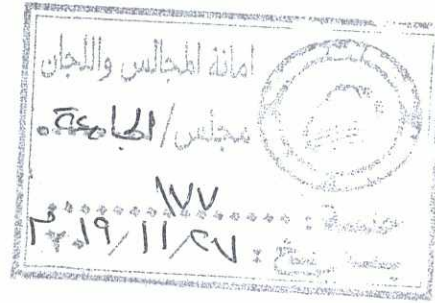 امانة المجالس واللجان
مجلس/الجامعة
١٧٧
٢٠١٩/١١/٢٧